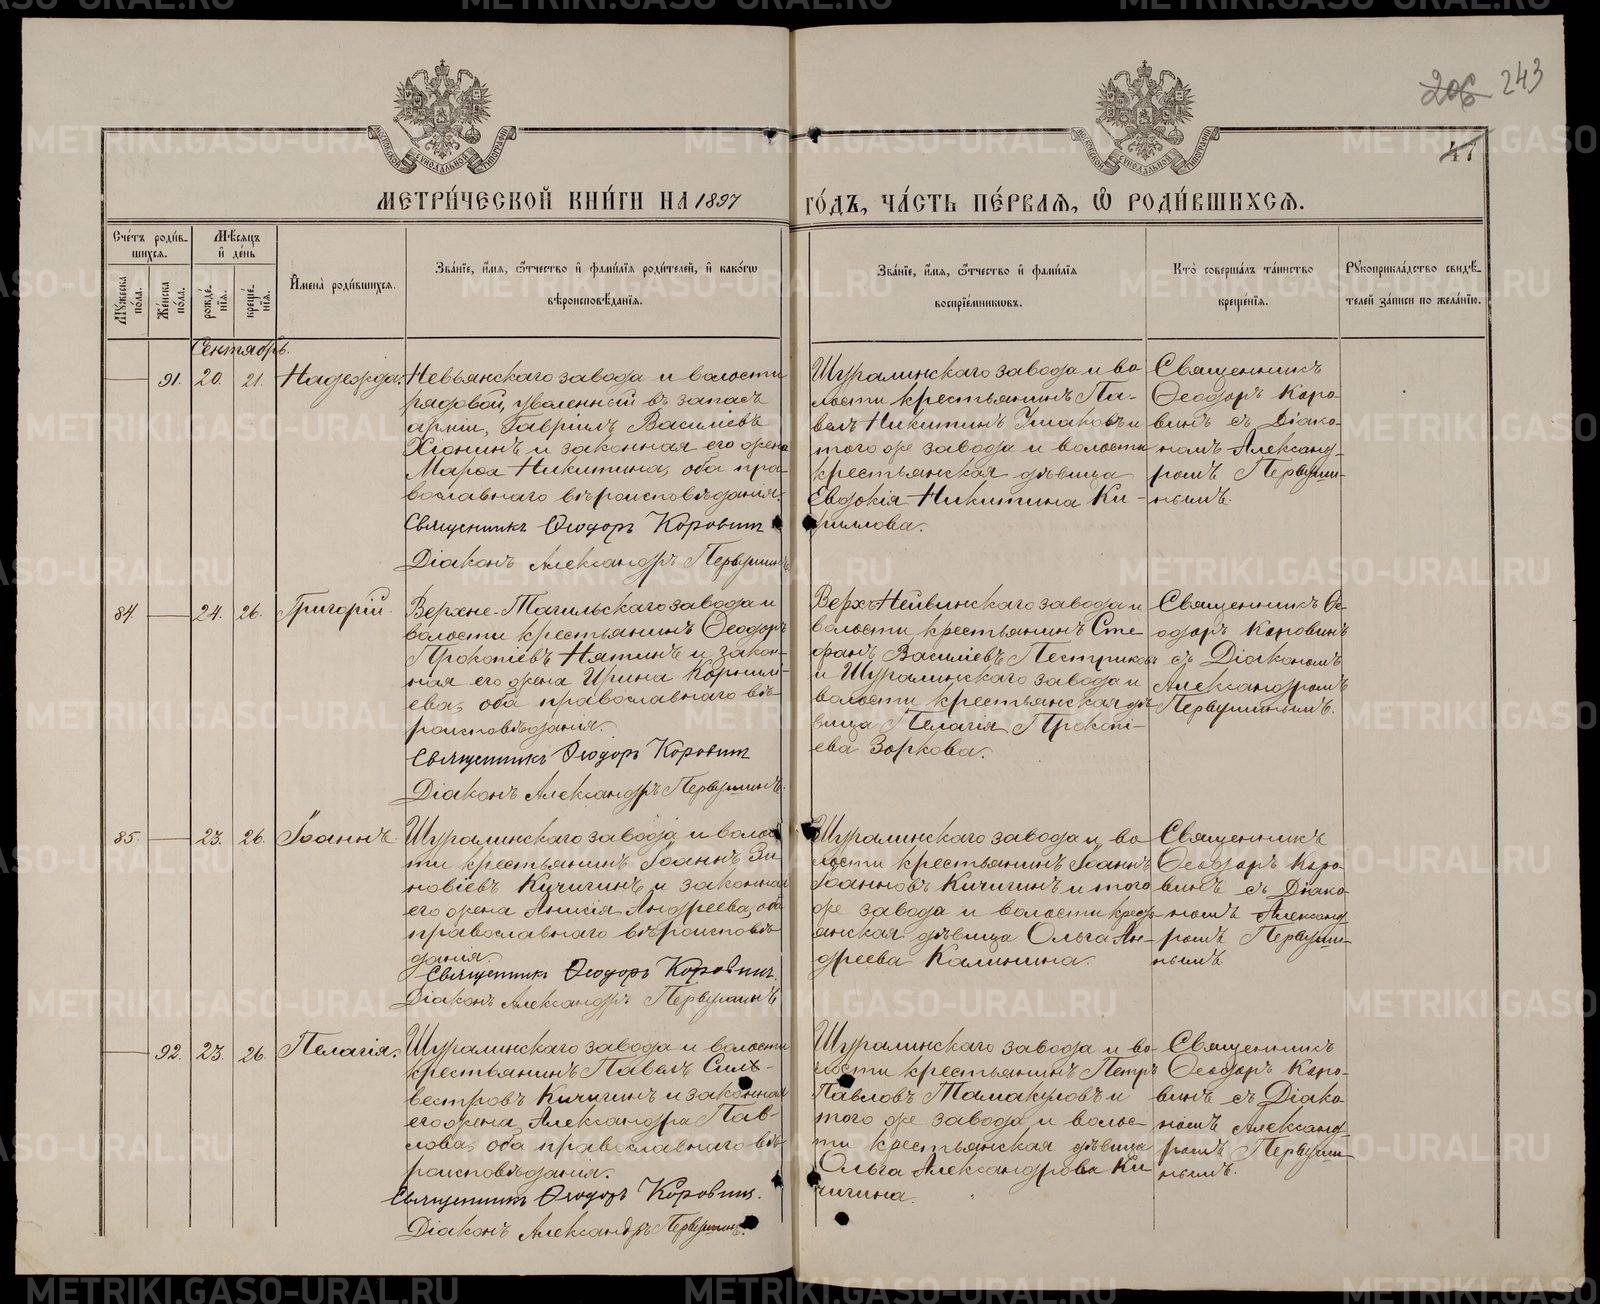 206 243
47
МОСКОВСКОЙ СУНОДАЛЬНОЙ ТИПОГРАФІИ
МОСКОВСКОЙ СУНОДАЛЬНОЙ ТИПОГРАФІИ
МЕТРИ́ЧЕСКОЙ КНИ́ГИ НА 1897 ГО́ДЪ, ЧА́СТЬ ПЕ́РВАЯ, Ѡ РОДИ́ВШИХСЯ.
Сче́тъ роди́в-
шихся.
Мꙋ́жеска по́ла.
Же́нска по́ла.
Мѣ́сяцъ
и҆ де́нь
рожде́нїя.
креще́нїя.
И҆мена̀ роди́вшихся.
Зва́нїе, и҆́мя, ѻ҆́тчество и҆ фами́лїя роди́телей, и҆ како́гѡ
вѣроисповѣ́данїя.
Зва́нїе, и҆́мя, ѻ҆́тчество и҆ фами́лїя
воспрїе́мникѡвъ.
Кто̀ соверша́лъ та́инство
креще́нїя.
Рꙋкоприкла́дство свидѣ́-
телей за́писи по жела́нїю.
Сентябрь.
— 91. 20. 21. Надежда.
Невьянскаго завода и волости
рядовой, уволенный въ запасъ
арміи, Гавріилъ Василіевъ
Хіонинъ и законная его жена
Марѳа Никитина, оба пра-
вославнаго вѣроисповѣданія.
Священникъ Ѳеодоръ Коровинъ
Діаконъ Александръ Первушинъ
Шуралинскаго завода и во-
лости крестьянинъ Па-
велъ Никитинъ Ушаковъ и
того же завода и волости
крестьянская дѣвица
Евдокія Никитина Ки-
риллова.
Священникъ
Ѳеодоръ Коро-
винъ съ Діако-
номъ Александ-
ромъ Первуши-
нымъ.
84. — 24. 26. Григорій.
Верхне-Тагильскаго завода и
волости крестьянинъ Ѳеодоръ
Прокопіевъ Нятинъ и закон-
ная его жена Ирина Корнилі-
ева, оба православнаго вѣ-
роисповѣданія.
Священникъ Ѳеодоръ Коровинъ
Діаконъ Александръ Первушинъ.
Верхъ-Нейвинскаго завода и
волости крестьянинъ Сте-
фанъ Василіевъ Пестриковъ
и Шуралинскаго завода и
волости крестьянская дѣ-
вица Пелагія Прокопі-
ева Зоркова.
Священникъ Ѳе-
одоръ Коровинъ
съ Діакономъ
Александромъ
Первушинымъ.
85. — 23. 26. Іоаннъ.
Шуралинскаго завода и волос-
ти крестьянинъ Іоаннъ Зи-
новіевъ Кичигинъ и законная
его жена Анисія Андреева, оба
православнаго вѣроисповѣ-
данія.
Священникъ Ѳеодоръ Коровинъ.
Діаконъ Александръ Первушинъ
Шуралинскаго завода и во-
лости крестьянинъ Іоаннъ
Іоанновъ Кичигинъ и того
же завода и волости кресть-
янская дѣвица Ольга Ан-
дреева Калинина.
Священникъ
Ѳеодоръ Коро-
винъ съ Діако-
номъ Александ-
ромъ Первуши-
нымъ.
— 92. 23. 26. Пелагія.
Шуралинскаго завода и волости
крестьянинъ Павелъ Силь-
вестровъ Кичигинъ и законная
его жена Александра Пав-
лова, оба православнаго вѣ-
роисповѣданія.
Священникъ Ѳеодоръ Коровинъ.
Діаконъ Александръ Первушинъ.
Шуралинскаго завода и во-
лости крестьянинъ Петръ
Павловъ Тамакуловъ и
того же завода и волос-
ти крестьянская дѣвица
Ольга Александрова Ки-
чигина.
Священникъ
Ѳеодоръ Коро-
винъ съ Діако-
номъ Александ-
ромъ Первуши-
нымъ.
METRIKI.GASO-URAL.RU